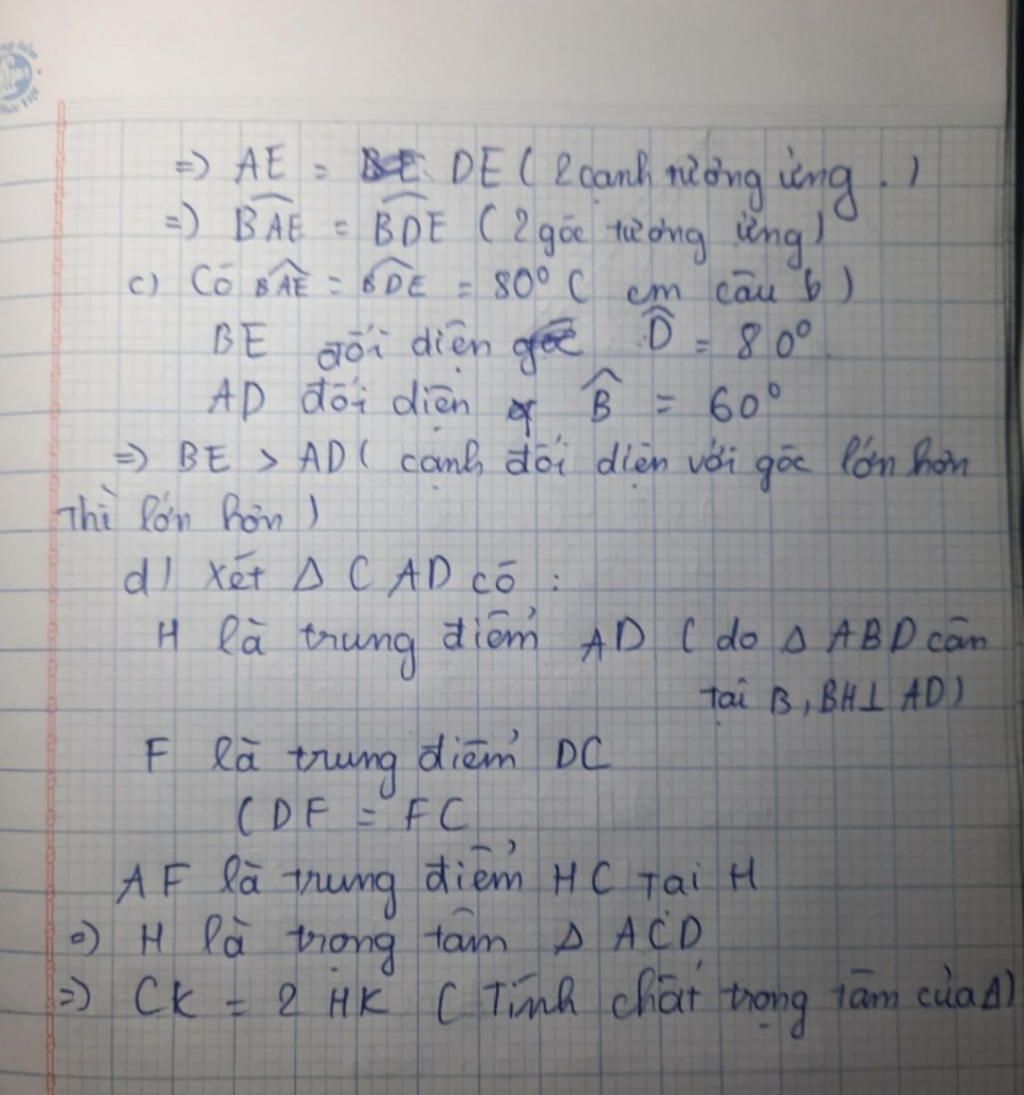 => AE = DE ( 2 cạnh tương ứng . )
=> BAE = BDE ( 2 góc tương ứng )
c) Có BAE = BDE = 80° ( cm câu b )
BE đối diện góc D = 80°
AD đối diện B = 60°
=> BE > AD ( cạnh đối diện với góc lớn hơn
thì lớn hơn )
d) Xét Δ CAD có :
H là trung điểm AD ( do Δ ABD cân
tại B, BH⊥ AD )
F là trung điểm DC
( DF = FC
AF là trung điểm HC tại H
=> H là trọng tâm Δ ACD
=> CK = 2 HK ( Tính chất trọng tâm của Δ )